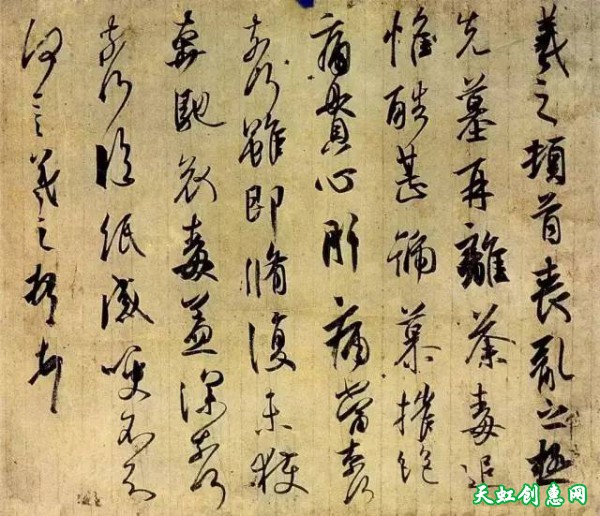 羲之頓首喪亂之極
先墓再離荼毒追
惟酷甚號慕摧絕
痛貫心肝痛當奈何
奈何雖即脩復未獲
奔馳哀毒益深奈何
奈何臨紙感哽不知
何言羲之頓首
天虹创惠网